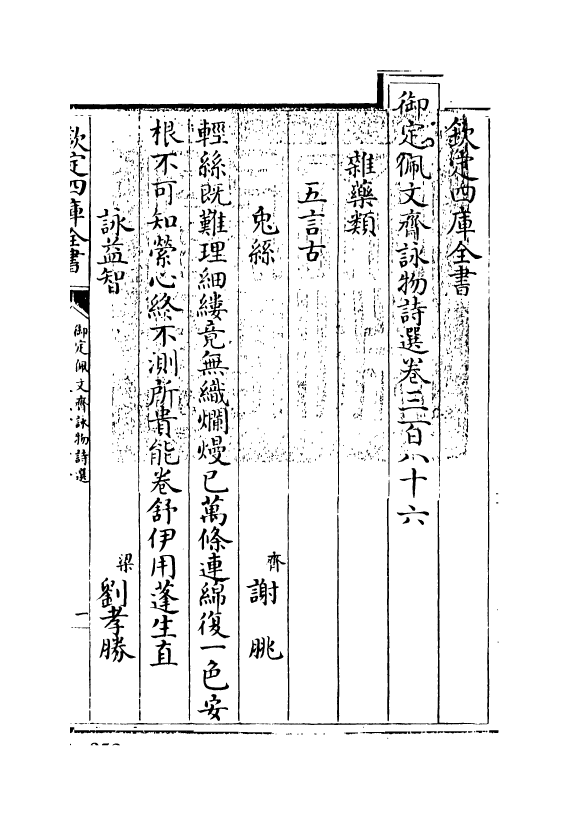 欽定四庫全書
御定佩文齋詠物詩選卷三百八十六
雜藥類
五言古
兎絲 齊 謝朓
輕絲既難理細縷竟無織爛熳已萬條連綿復一色安
根不可知縈心終不測所貴能卷舒伊用蓬生直
詠益智 梁 劉孝勝
欽定四庫全書 御定佩文齋詠物詩選 一